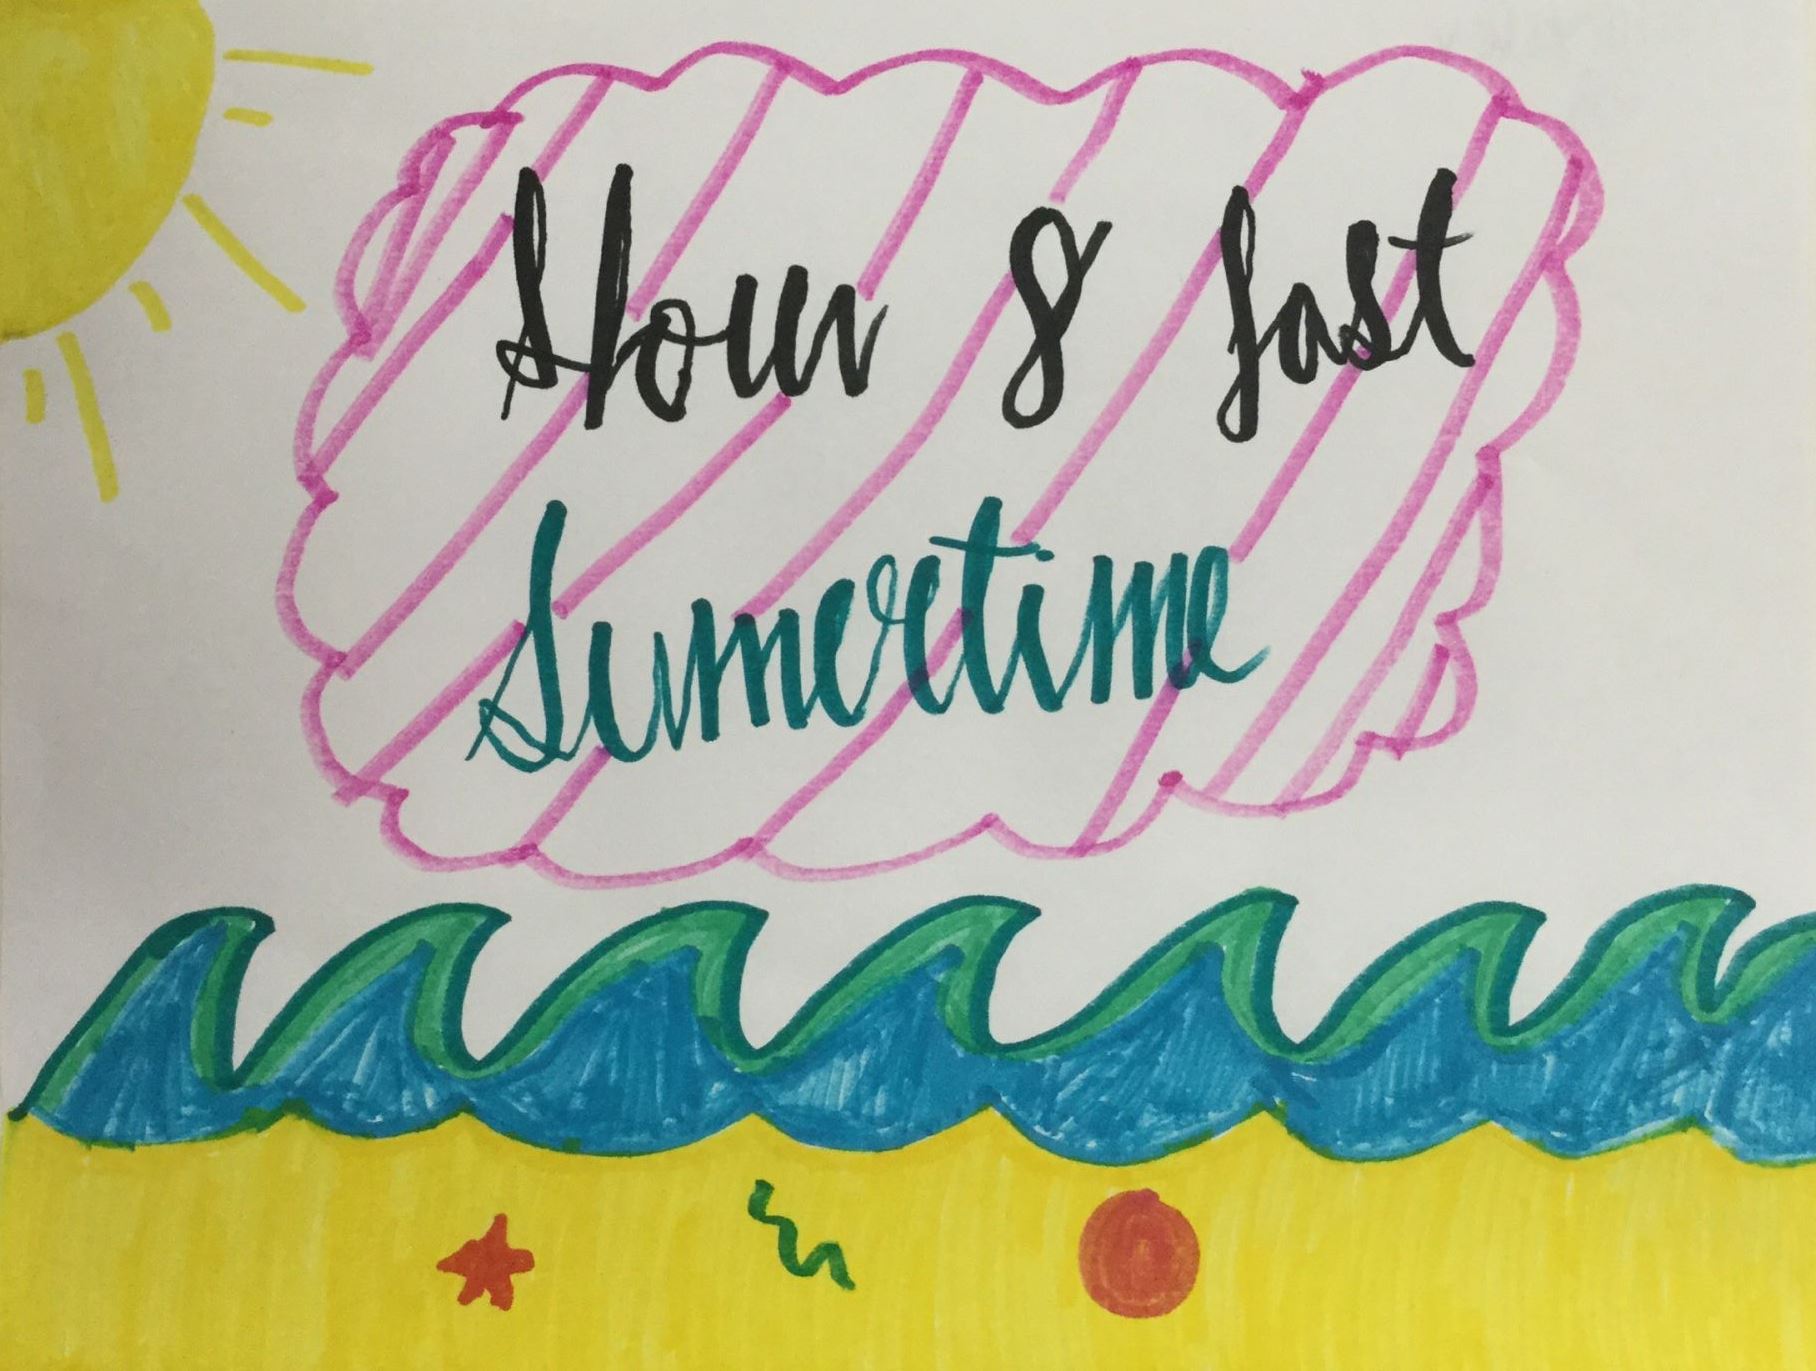 Slow & fast
Sumertime